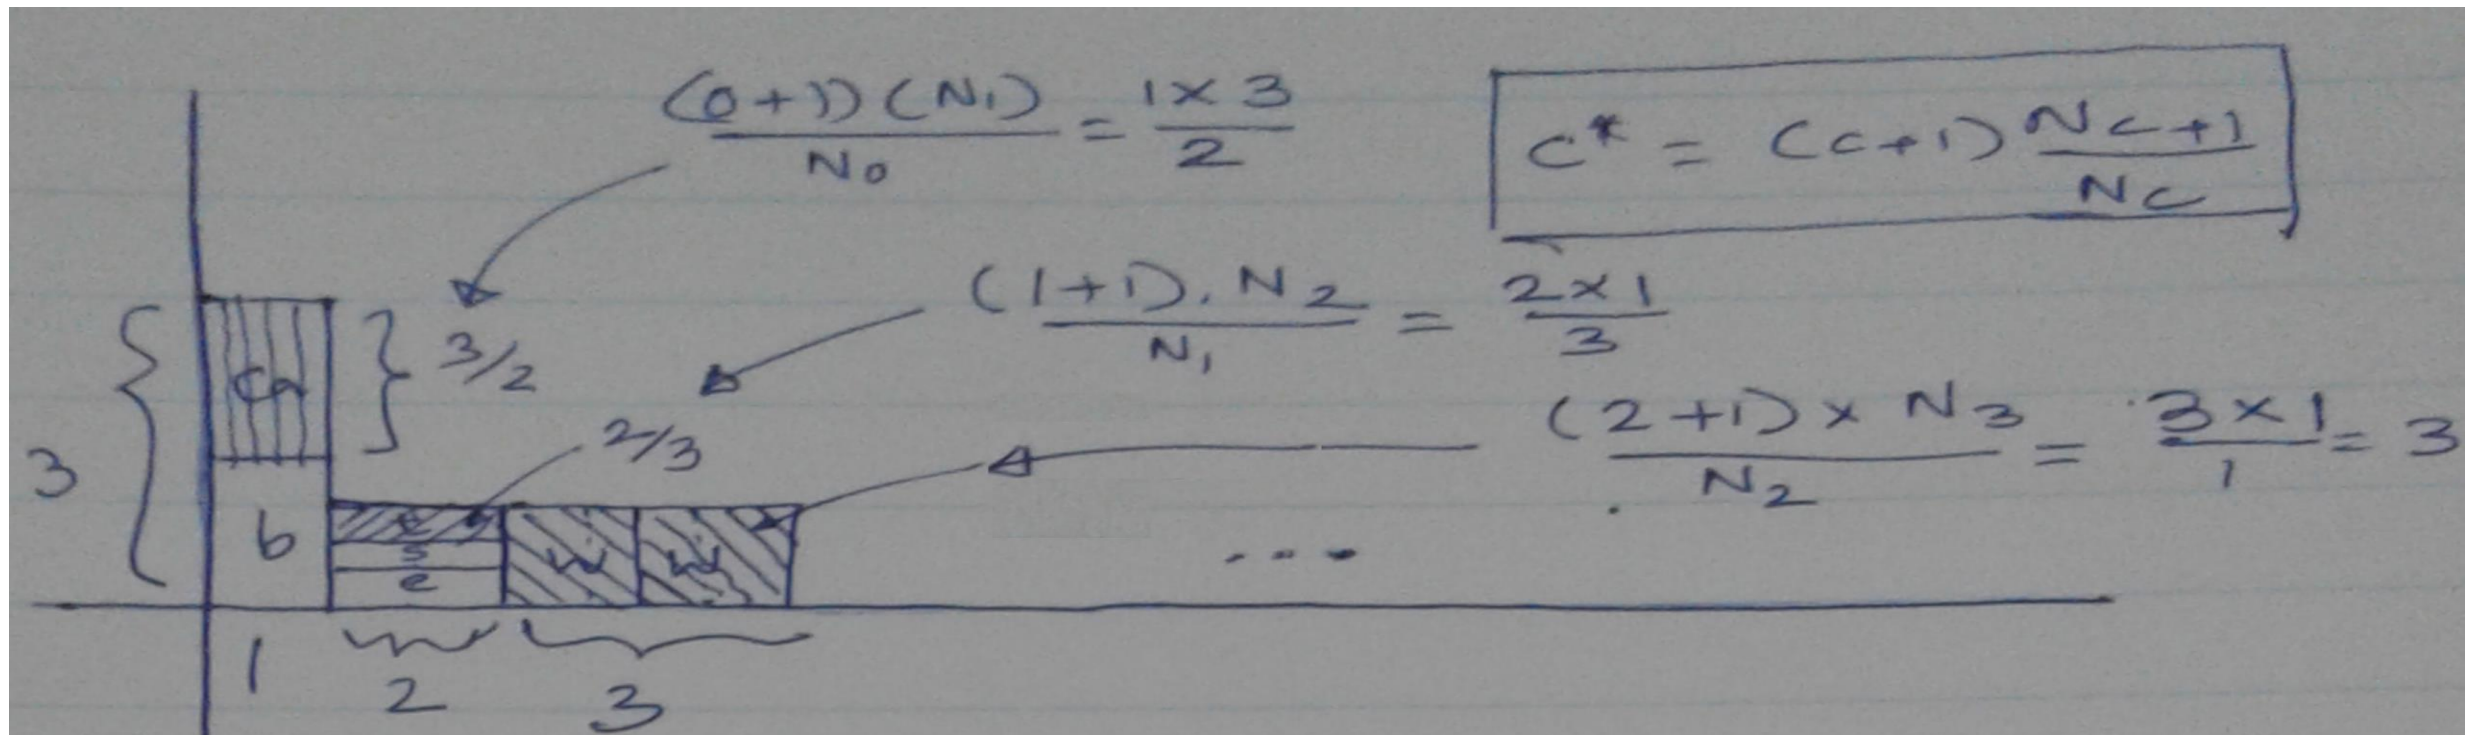 (0+1)(N₁)/N₀ = 1×3/2
c* = (c+1) Nc+1/Nc
(1+1).N₂/N₁ = 2×1/3
3/2
(2+1)×N₃/N₂ = 3×1/1 = 3
2/3
3
b
s
e
w w
...
1
2
3